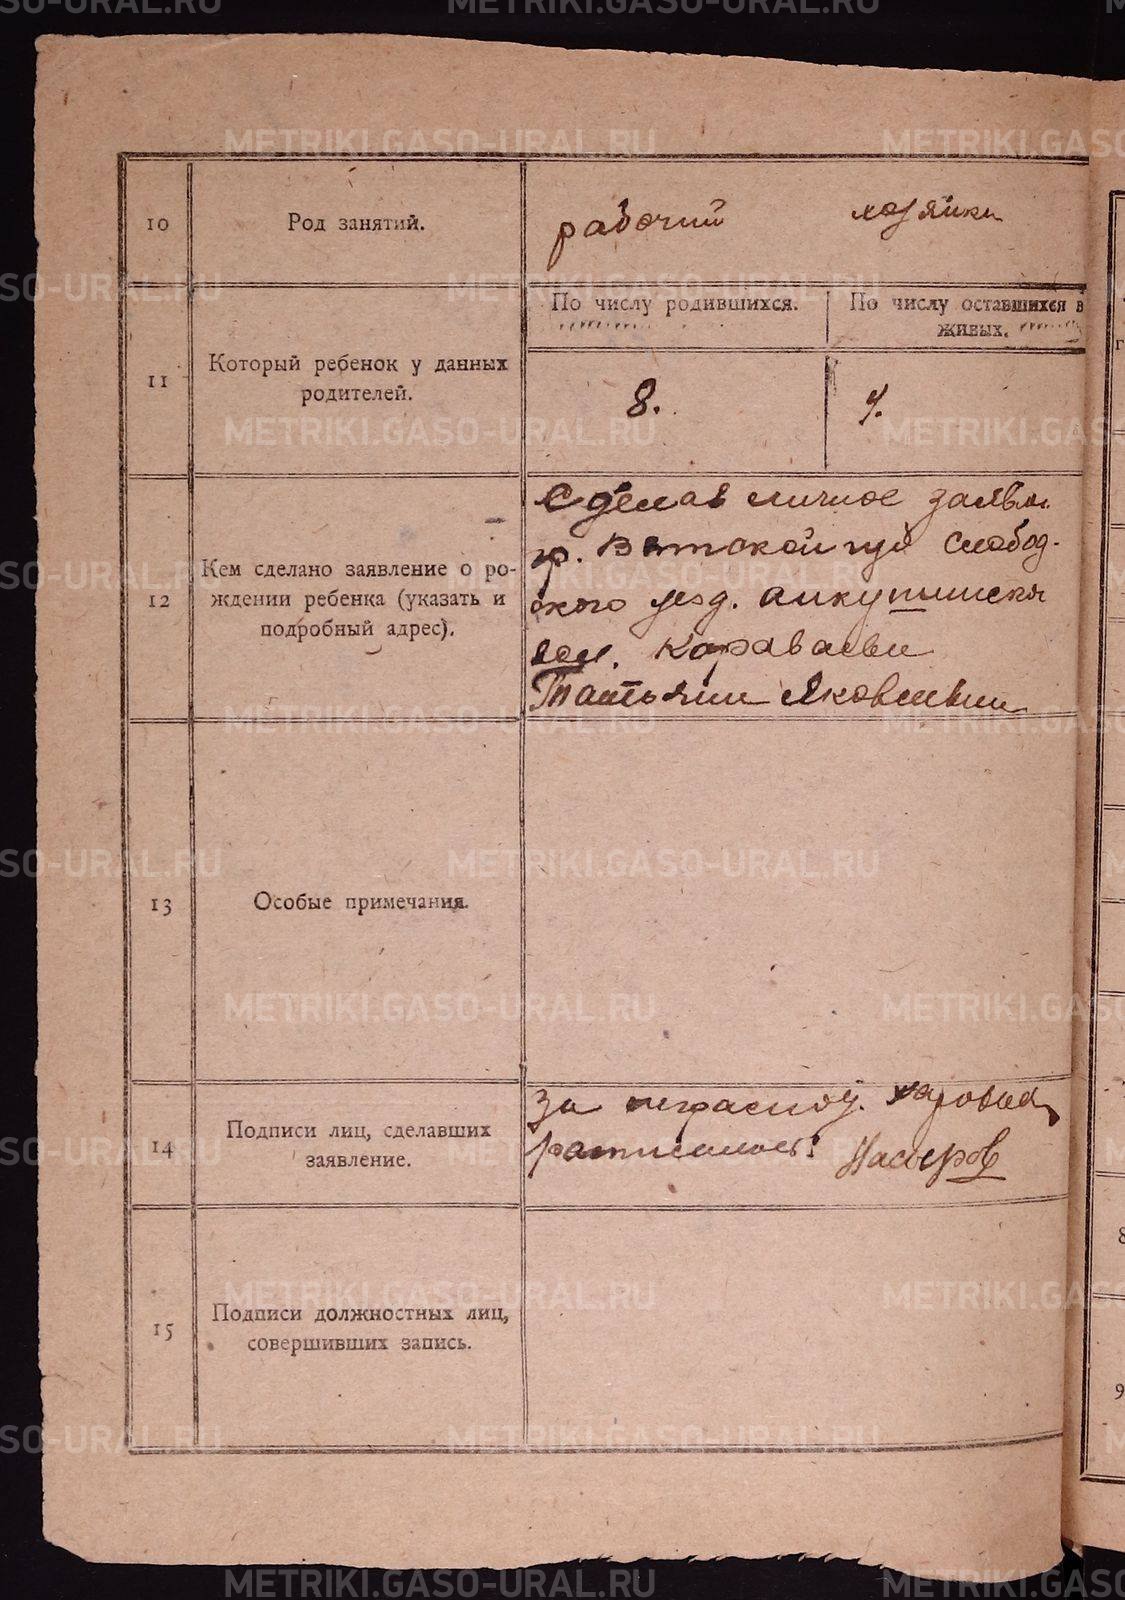 10
Род занятий.
рабочий хозяйки
11
Который ребенок у данных
родителей.
По числу родившихся.
По числу оставшихся в
живых.
8.
4.
12
Кем сделано заявление о ро-
ждении ребенка (указать и
подробный адрес).
Сделав личное заявл.
гр. Вятской губ Слобод-
ского уезд.
вол. Караваевы
Татьяны Яковлевны
13
Особые примечания.
14
Подписи лиц, сделавших
заявление.
За неграмотн.
расписался:
15
Подписи должностных лиц,
совершивших запись.
8
9
METRIKI.GASO-URAL.RU